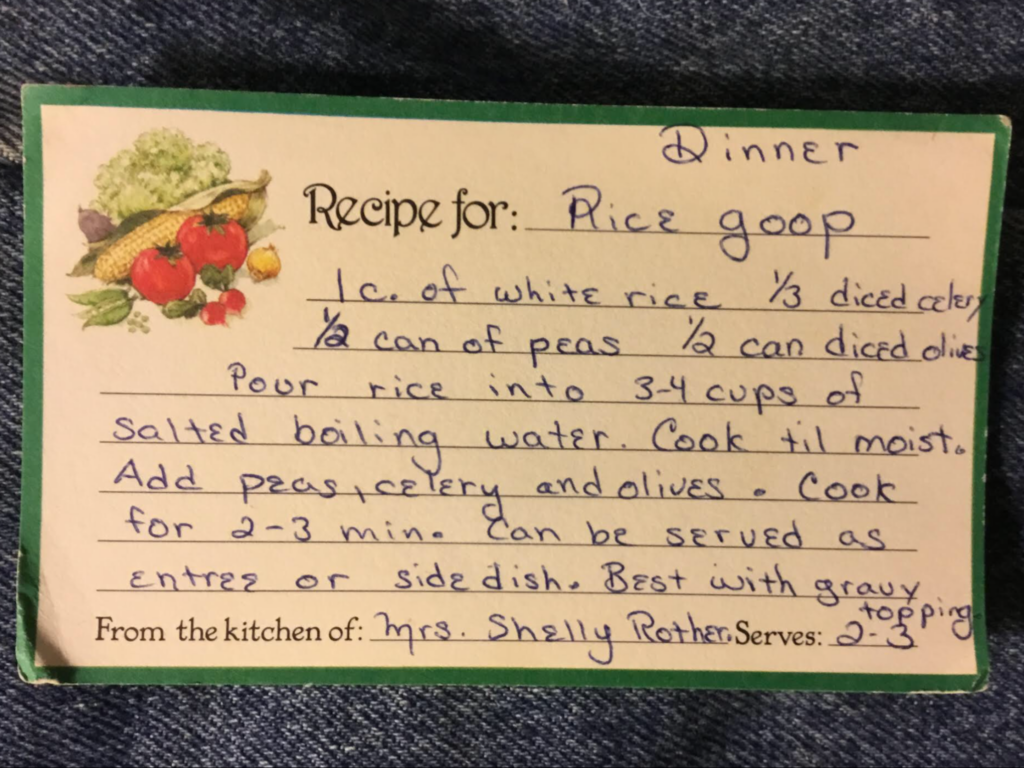 Dinner
Recipe for: Rice goop
1 c. of white rice 1/3 diced celery
1/2 can of peas 1/2 can diced olives
Pour rice into 3-4 cups of
salted boiling water. Cook til moist.
Add peas, celery and olives. Cook
for 2-3 min. Can be served as
entree or side dish. Best with gravy
topping.
From the kitchen of: Mrs. Shelly Rother. Serves: 2-3